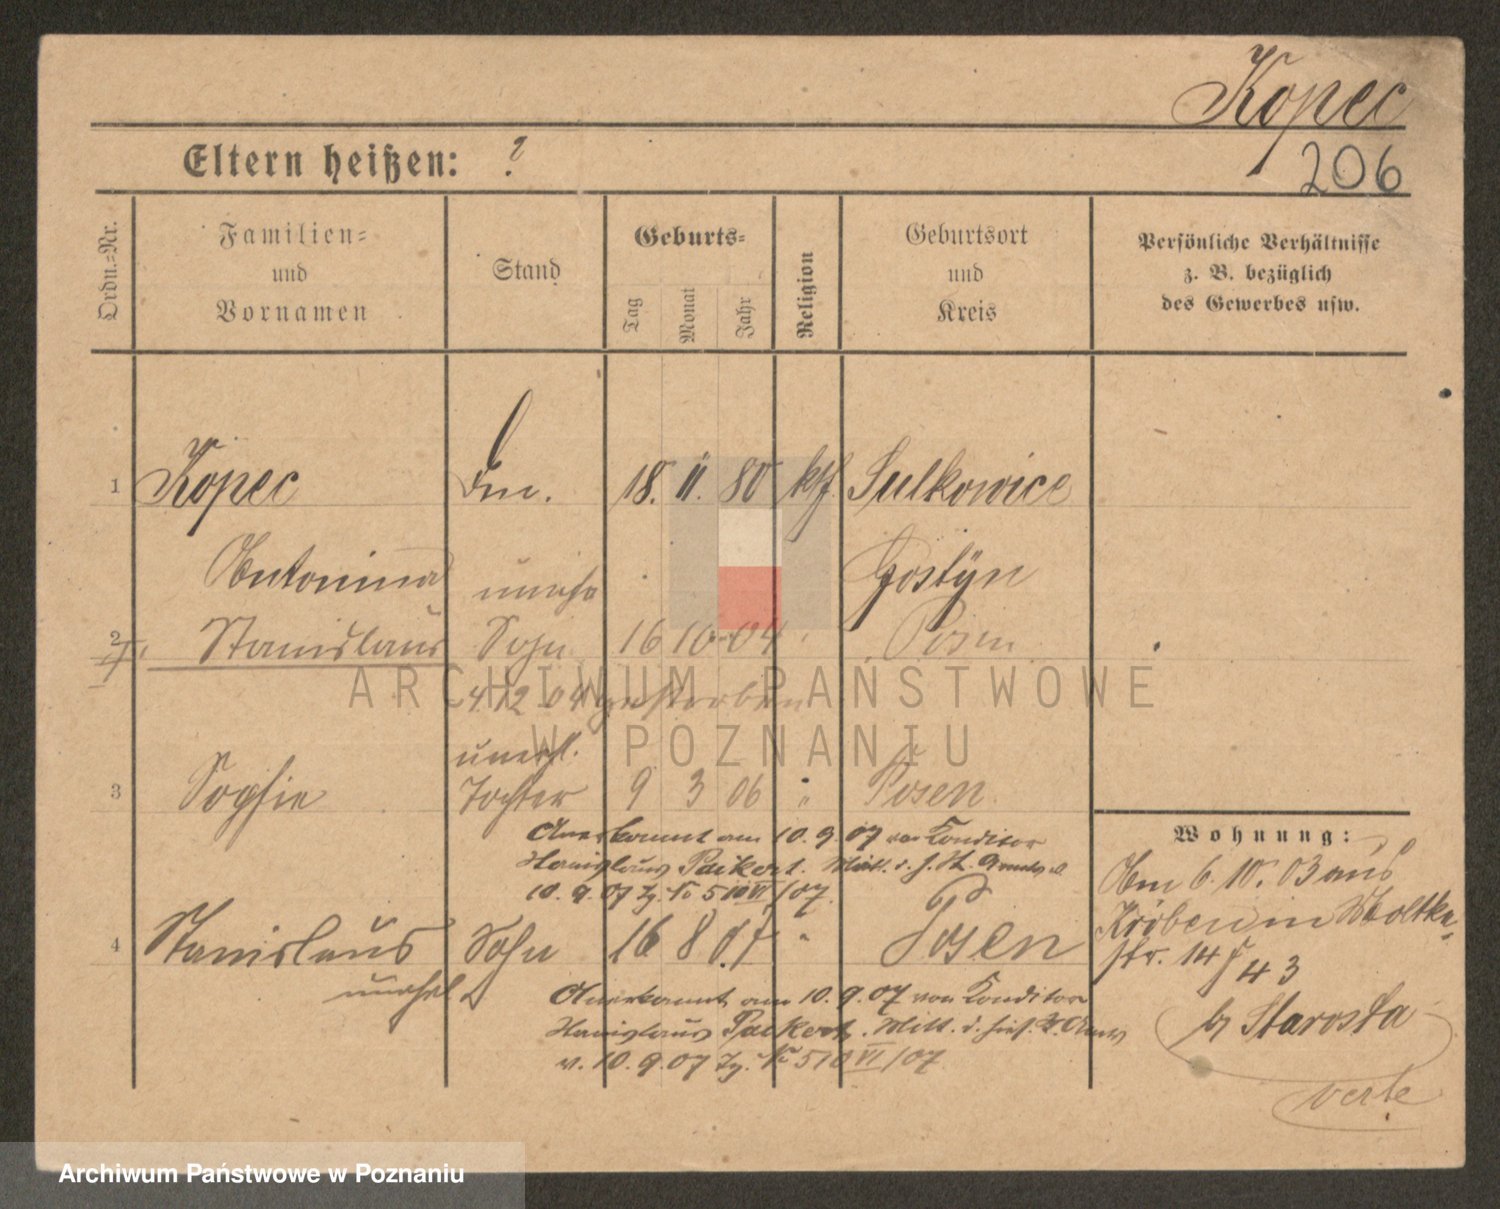 Kopec
Eltern heißen: ?
206
Ordn.=Nr.
Familien=
und
Vornamen
Stand
Geburts=
Tag
Monat
Jahr
Religion
Geburtsort
und
Kreis
Persönliche Verhältnisse
z. B. bezüglich
des Gewerbes usw.
1 Kopec 18. 11. 80 kth. Sulkowice
Antonina Gostÿn
unehe
2 Stanislaus Sohn 16 10 04 Posen
4 12 04 gestorben
ARCHIWUM PAŃSTWOWE
W POZNANIU
unehl.
3 Sophie Tochter 9 3 06 " Posen
Anerkannt am 10. 9. 07 von Konditor
Stanislaus Packert. Mitt. d. h. St. Amts v.
10. 9. 07 Tg. No 510 VI/07.
4 Stanislaus Sohn 16 8 07 " Posen
unehel.
Anerkannt am 10. 9. 07 von Konditor
Stanislaus Packert. Mitt. d. hies. St. Amts
v. 10. 9. 07 Tg. No 510 VI/07
Wohnung:
Am 6. 10. 03 aus
Kröben in Moltke
str. 14 43
b/ Starosta
verte
Archiwum Państwowe w Poznaniu